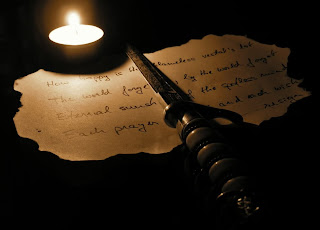 How happy is the blameless vestal's lot
The world forge by the world forgot
Eternal sunsh of the spotless mind
Each prayer and each wish